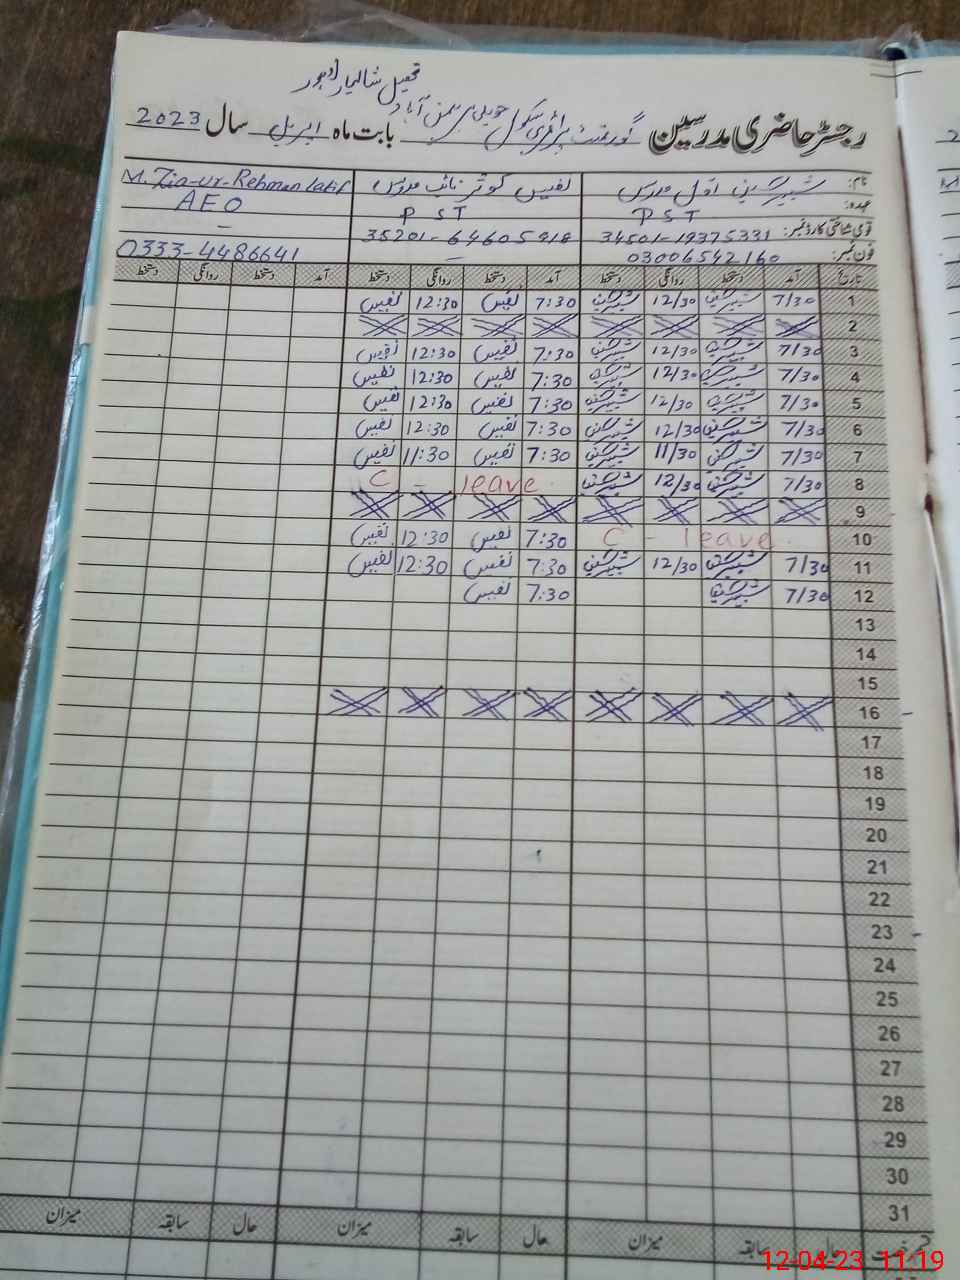 تحصیل شالیمار لاہور
رجسٹر حاضری مدرسین گورنمنٹ پرائمری سکول حویلی آباد بابت ماہ اپریل سال 2023
نام: شیریں اول مدرس نفیس کوثر نائب مدرس M. Zia-ur-Rehman Latif
عہدہ: PST PST AEO
قومی شناختی کارڈ نمبر: 34501-19375331 35201-64605918 -
فون نمبر: 03006542160 - 0333-4486641
تاریخ آمد دستخط روانگی دستخط آمد دستخط روانگی دستخط آمد دستخط روانگی دستخط
1 7/30 12/30 7:30 نفیس 12:30 نفیس
2
3 7/30 12/30 7:30 نفیس 12:30 نفیس
4 7/30 12/30 7:30 نفیس 12:30 نفیس
5 7/30 12/30 7:30 نفیس 12:30 نفیس
6 7/30 12/30 7:30 نفیس 12:30 نفیس
7 7/30 11/30 7:30 نفیس 11:30 نفیس
8 7/30 12/30 C - leave
9
10 C - leave 7:30 نفیس 12:30 نفیس
11 7/30 12/30 7:30 نفیس 12:30 نفیس
12 7/30 7:30 نفیس
13
14
15
16
17
18
19
20
21
22
23
24
25
26
27
28
29
30
31
حال سابقہ میزان حال سابقہ میزان حال سابقہ میزان
12-04-23 11:19